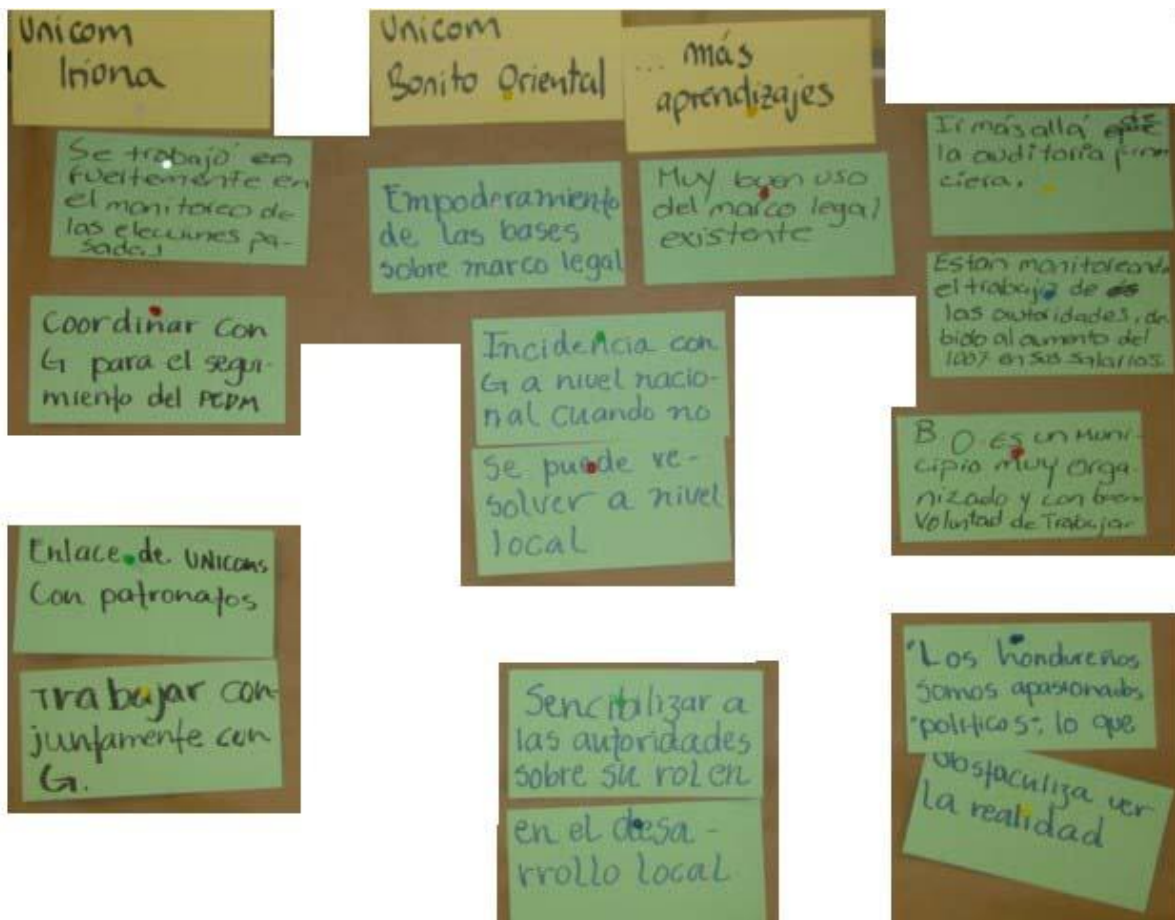 Unicom
Iriona
Se trabajó en
fuertemente en
el monitoreo de
las elecciones pa-
sadas
Coordinar con
G para el segui-
miento del PEDM
Enlace de UNICOMS
Con patronatos
Trabajar con-
juntamente con
G.
Unicom
Bonito Oriental
Empoderamiento
de las bases
sobre marco legal
Incidencia con
G a nivel nacio-
nal cuando no
se puede re-
solver a nivel
local
Sencibilizar a
las autoridades
sobre su rol en
en el desa-
rrollo local
... más
aprendizajes
Muy buen uso
del marco legal
existente
Ir más allá de
la auditoria finan
ciera.
Estan monitoreando
el trabajo de
las autoridades, de
bido al aumento del
100% en sus salarios.
B O Es un Muni-
cipio muy orga-
nizado y con buena
Voluntad de Trabajar
"Los hondureños
somos apasionados
"politicos", lo que
obstaculiza ver
la realidad